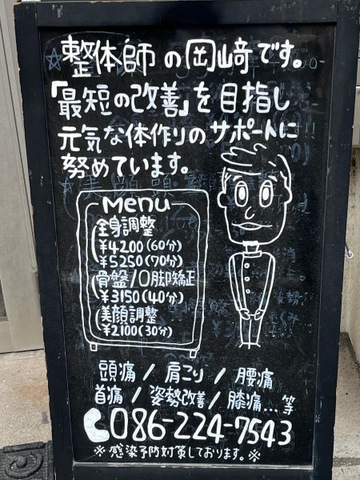 整体師の岡崎です。
「最短の改善」を目指し
元気な体作りのサポートに
努めています。
Menu
全身調整
¥4200(60分)
¥5250(70分)
骨盤/O脚矯正
¥3150(40分)
美顔調整
¥2100(30分)
頭痛/肩こり/腰痛
首痛/姿勢改善/膝痛...等
086-224-7543
※感染予防対策しております。※